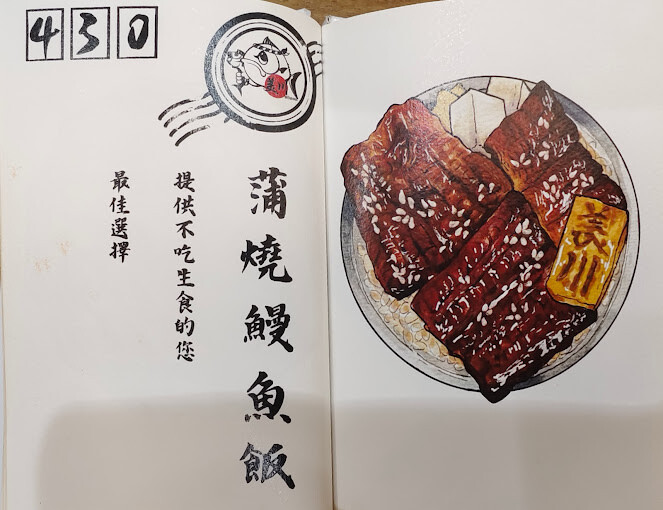 430
蒲燒鰻魚飯
提供不吃生食的您
最佳選擇
美川
美川